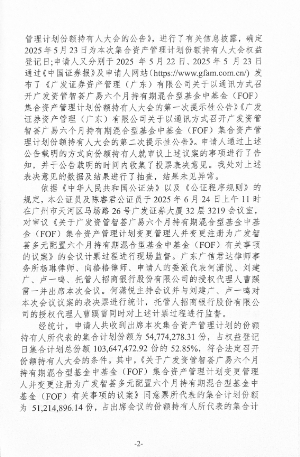 管理计划份额持有人大会的公告》，进行了有关信息披露，确定
2025年5月23日为本次集合资产管理计划份额持有人大会权益
登记日;申请人又分别于 2025 年 5月22日、2025 年 5月23日
通过《中国证券报》及申请人网站(https://www.gfam.com.cn/) 发
布了《广发证券资产管理（广东）有限公司关于以通讯方式召
开广发资管智荟广易六个月持有期混合型基金中基金（FOF）
集合资产管理计划份额持有人大会的第一次提示性公告》《广发
证券资产管理（广东）有限公司关于以通讯方式召开广发资管
智荟广易六个月持有期混合型基金中基金（FOF）集合资产管
理计划份额持有人大会的第二次提示性公告》。申请人通过上述
公告载明的方式向份额持有人就审议上述议案的事项进行了告
知，并于公告载明的时间内收集了投票表决意见。我处对上述
表决意见的数据及结果进行了检查，结果未见异常。
依据《中华人民共和国公证法》以及《公证程序规则》的规
定，本公证员及陈睿君公证员于 2025 年 6月24日上午 11 时
在广州市天河区马场路 26 号广发证券大厦 32 层 3219 会议室，
对审议《关于广发资管智荟广易六个月持有期混合型基金中基
金（FOF）集合资产管理计划变更管理人并变更注册为广发智
荟多元配置六个月持有期混合型基金中基金（FOF）有关事项
的议案》的会议计票过程进行现场监督。广东广信君达律师事
务所杨琳律师、向格格律师、申请人的委派代表何潇悦、刘建
广、卢一鸣、托管人招商银行股份有限公司的授权代理人曹踢
周一并出席本次会议。何潇悦主持会议并与刘建广、卢一鸣对
本次会议议案的表决票进行统计，托管人招商银行股份有限公
司的授权代理人曹踢周同时对上述计票过程进行监督。
经统计，申请人共收到出席本次集合资产管理计划的份额
持有人所代表的集合计划份额为 54,774,278.31 份，占权益登记
日集合计划总份额 103,647,472.92 份的 52.85%，符合法定召开
份额持有人大会的条件。其中，《关于广发资管智荟广易六个月
持有期混合型基金中基金（FOF）集合资产管理计划变更管理
人并变更注册为广发智荟多元配置六个月持有期混合型基金中
基金（FOF）有关事项的议案》同意票所代表的集合计划份额
为 51,214,896.14 份，占出席会议的份额持有人所代表的集合计
-2-